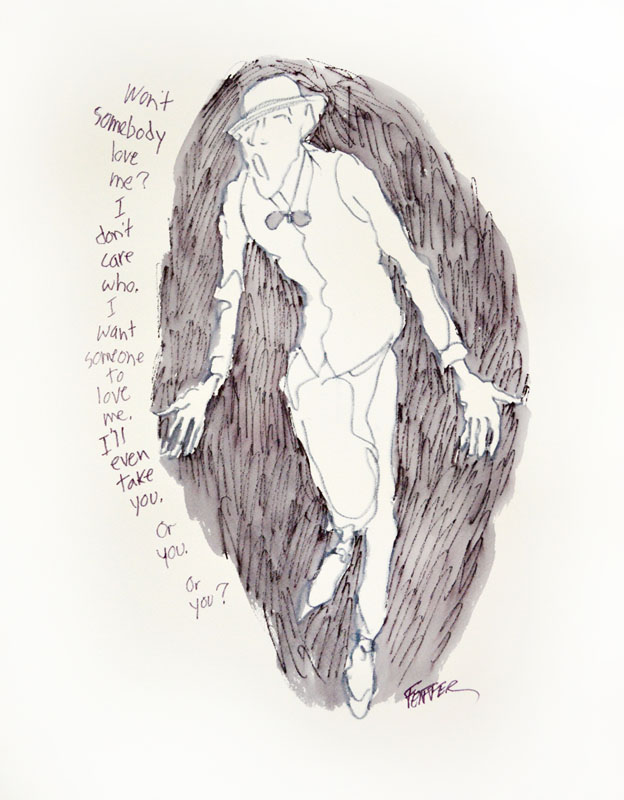 Won't
somebody
love
me?
I
don't
care
who.
I
want
someone
to
love
me.
I'll
even
take
you.
Or
you.
Or
you?
FEIFFER